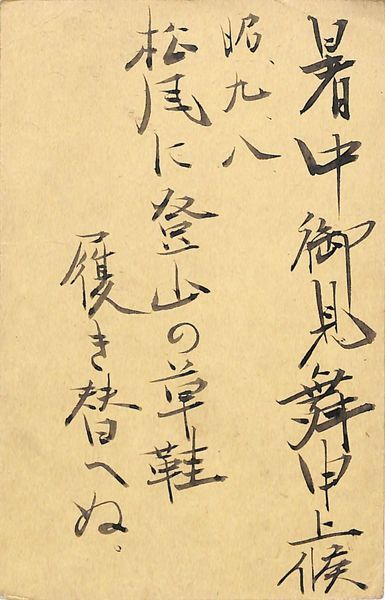 暑中御見舞申上候
昭、九、八
松尾に登山の草鞋
履き替へぬ。